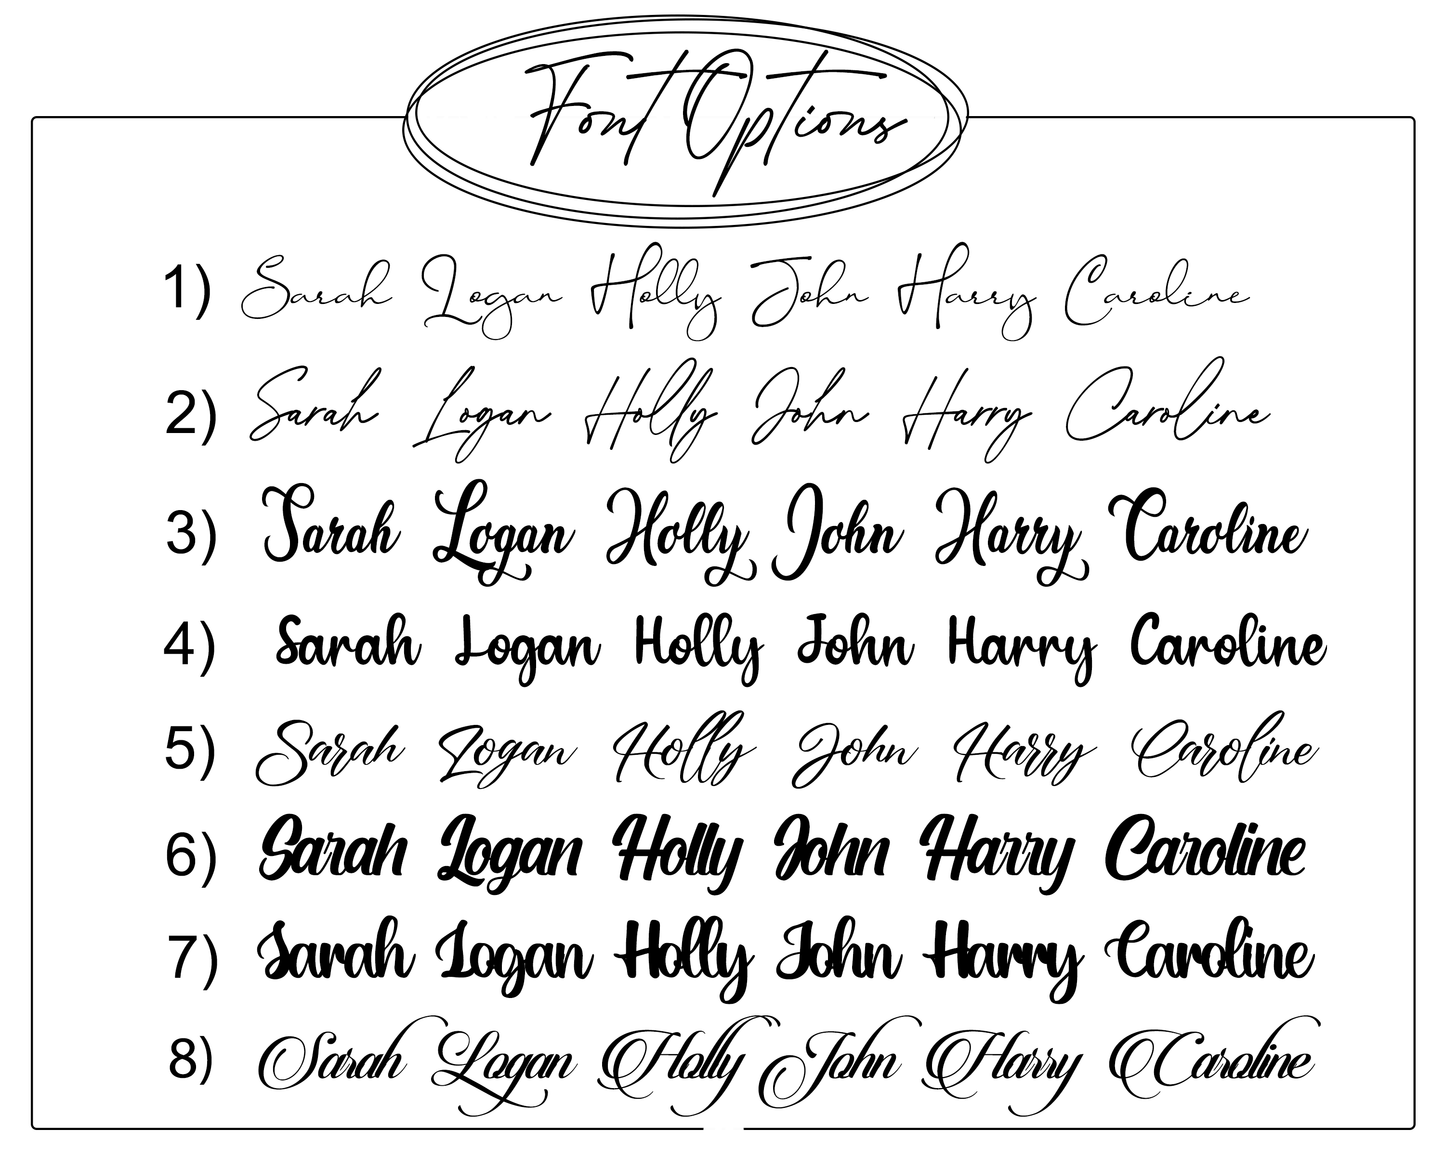 Font Options
1) Sarah Logan Holly John Harry Caroline
2) Sarah Logan Holly John Harry Caroline
3) Sarah Logan Holly John Harry Caroline
4) Sarah Logan Holly John Harry Caroline
5) Sarah Logan Holly John Harry Caroline
6) Sarah Logan Holly John Harry Caroline
7) Sarah Logan Holly John Harry Caroline
8) Sarah Logan Holly John Harry Caroline